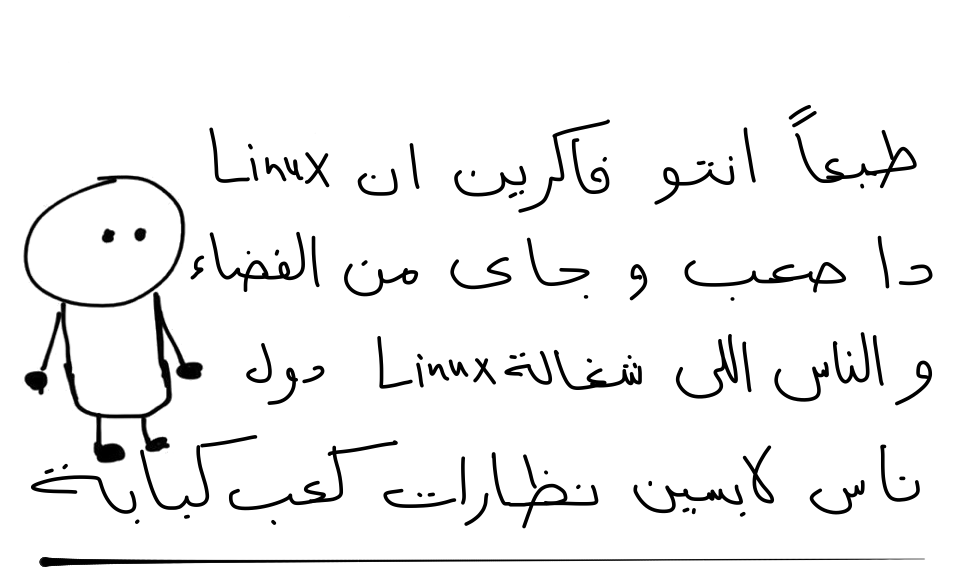 طبعاً انتو فاكرين ان Linux
دا صعب و جاى من الفضاء
و الناس اللى شغالة Linux دول
ناس لابسين نظارات كعب كبابة